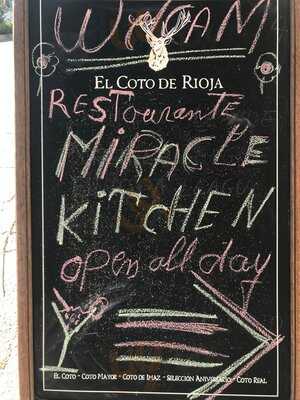 WHAM
EL COTO DE RIOJA
RESTourante
MiRACLE
KiTCHEN
open all day
EL COTO - COTO MAYOR - COTO DE IMAZ - SELECCIÓN ANIVERSARIO - COTO REAL